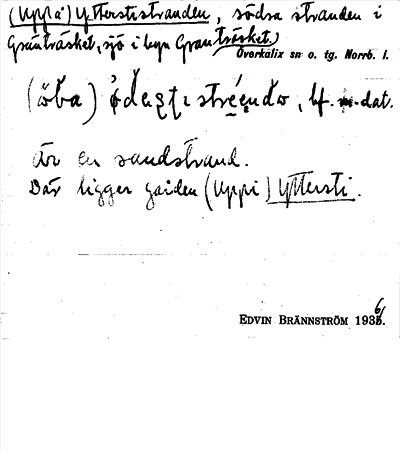 (Uppå) Ytterstistranden, södra stranden i
Granträsket, sjö i byn Granträsket)
Överkalix sn o. tg. Norrb. l.
(öƀa) , bf. m. dat.
är en sandstrand.
Där ligger gården (Uppi) Yttersti.
EDVIN BRÄNNSTRÖM 1936.